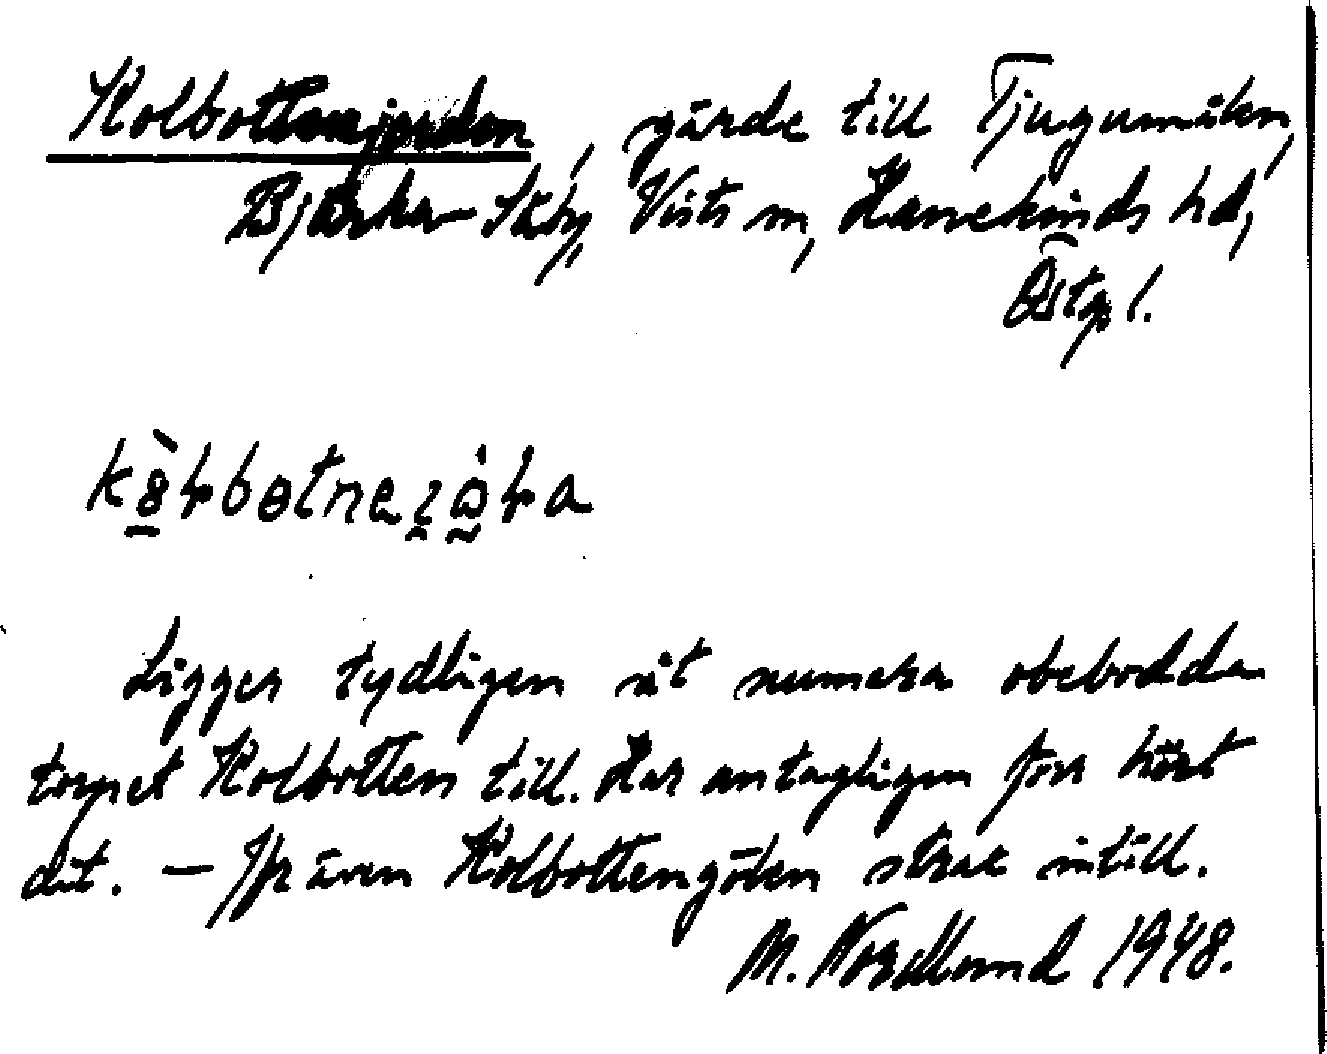 Kolbottenjorden, gärde till Tjugumålen,
Bjärka-Säby, Vists sn, Hanekinds hd,
Östg l.
Ligger tydligen åt numera obebodda
torpet Kolbotten till. Har antagligen förr hört
dit. – Jfr även Kolbottengölen strax intill.
M. Nordlund 1948.